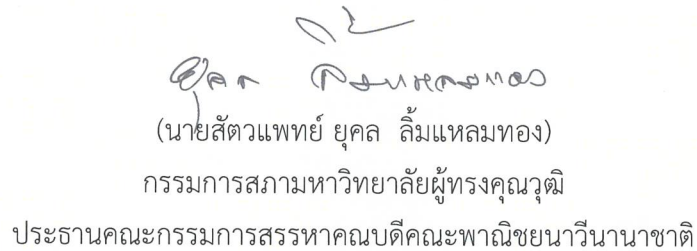 ยุคล ลิ้มแหลมทอง
(นายสัตวแพทย์ ยุคล ลิ้มแหลมทอง)
กรรมการสภามหาวิทยาลัยผู้ทรงคุณวุฒิ
ประธานคณะกรรมการสรรหาคณบดีคณะพาณิชยนาวีนานาชาติ